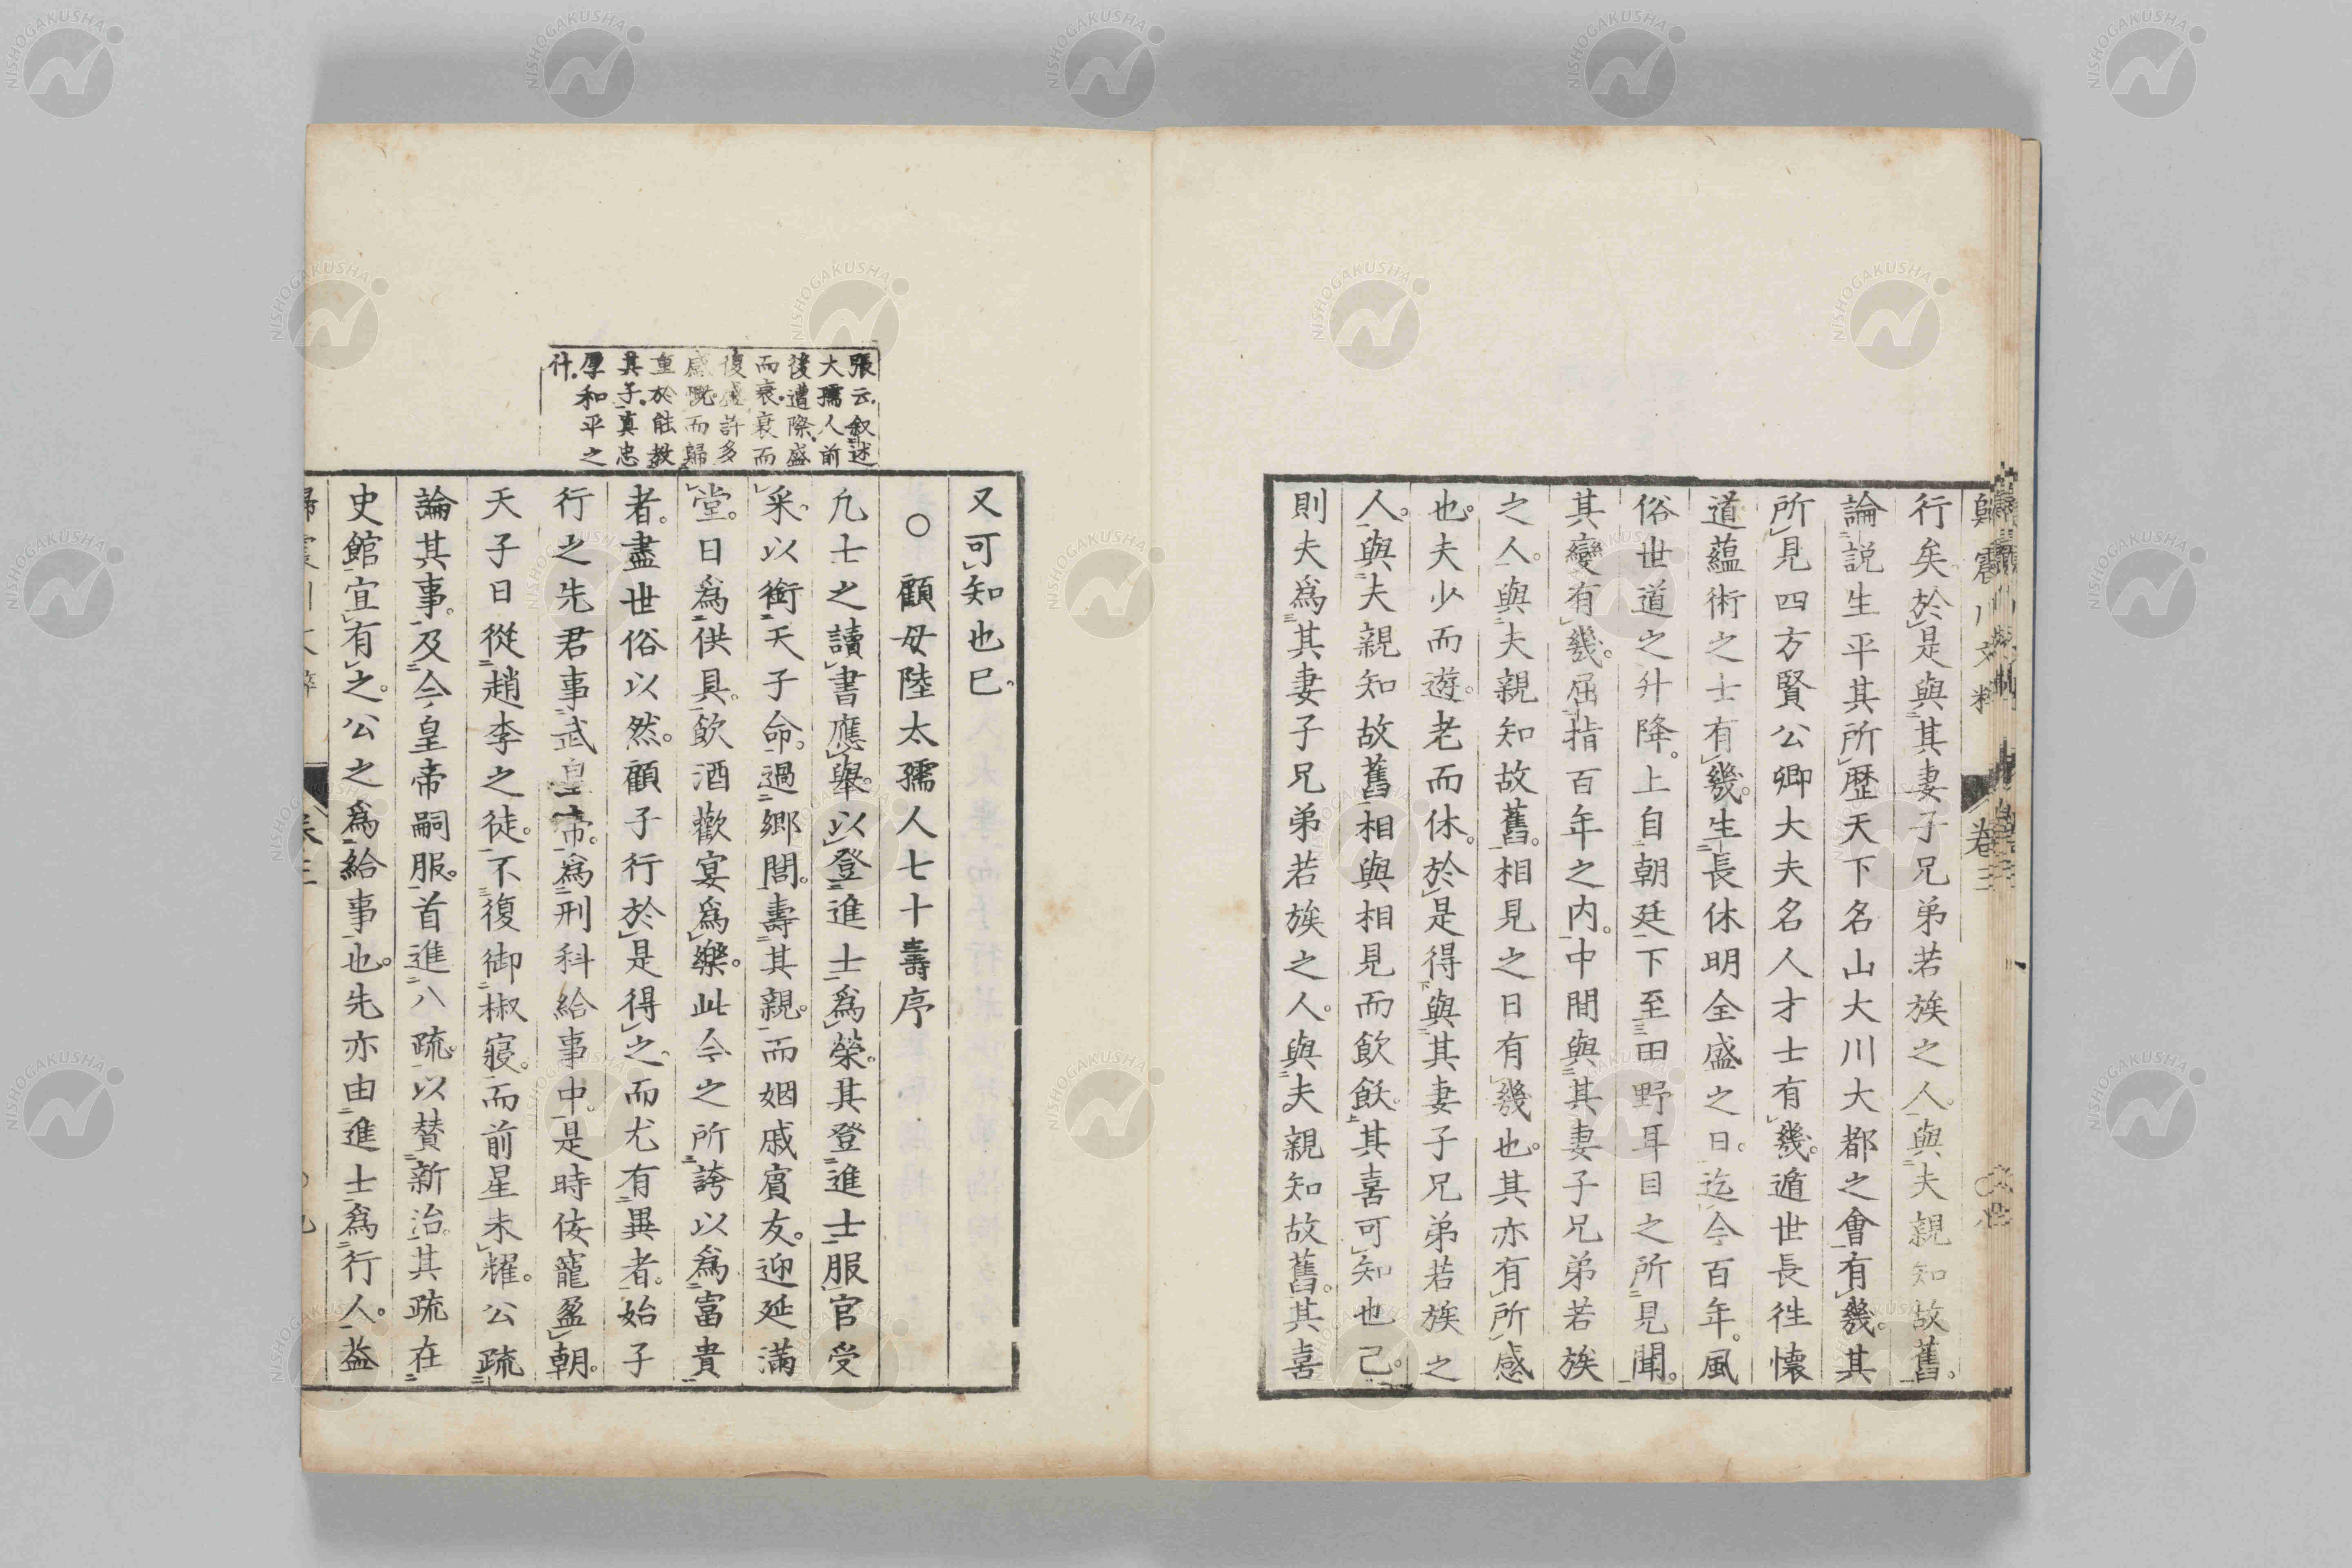 行矣於是與其妻子兄弟若族之人與夫親知故舊
論説生平其所歷天下名山大川大都之會有幾其
所見四方賢公卿大夫名人才士有幾遁世長徃懐
道蘊術之士有幾生長休明全盛之日迄今百年風
俗世道之升降上自朝廷下至田野耳目之所見聞
其變有幾屈指百年之内中間與其妻子兄弟若族
之人與夫親知故舊相見之日有幾也其亦有所感
也夫少而遊老而休於是得與其妻子兄弟若族之
人與夫親知故舊相與相見而飲飫其喜可知也已
則夫爲其妻子兄弟若族之人與夫親知故舊其喜
張云叙述
大孺人前
後遭際盛
而衰衰而
復盛許多
感慨而歸
重於能教
其子真忠
厚和平之
什
又可知也已
○顧母陸太孺人七十壽序
凢士之讀書應舉以登進士爲榮其登進士服官受
采以銜天子命過郷閭壽其親而姻戚賔友迎延滿
堂日爲供具飲酒歡宴爲樂此今之所誇以爲富貴
者盡世俗以然顧子行於是得之而尤有異者始子
行之先君事武皇帝爲刑科給事中是時侫寵盈朝
天子日從趙李之徒不復御椒寢而前星未耀公疏
論其事及今皇帝嗣服首進八疏以賛新治其疏在
史館宜有之公之爲給事也先亦由進士爲行人益
卷三
NISHOGAKUSHA